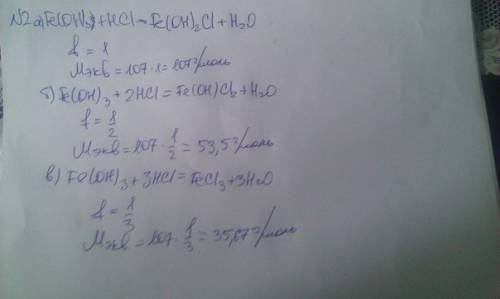 N2 а) Fe(OH)3 + HCl = Fe(OH)2Cl + H2O
f = 1
Mэкв = 107 · 1 = 107 г/моль
б) Fe(OH)3 + 2HCl = Fe(OH)Cl2 + H2O
f = 1/2
Mэкв = 107 · 1/2 = 53,5 г/моль
в) Fe(OH)3 + 3HCl = FeCl3 + 3H2O
f = 1/3
Mэкв = 107 · 1/3 = 35,67 г/моль